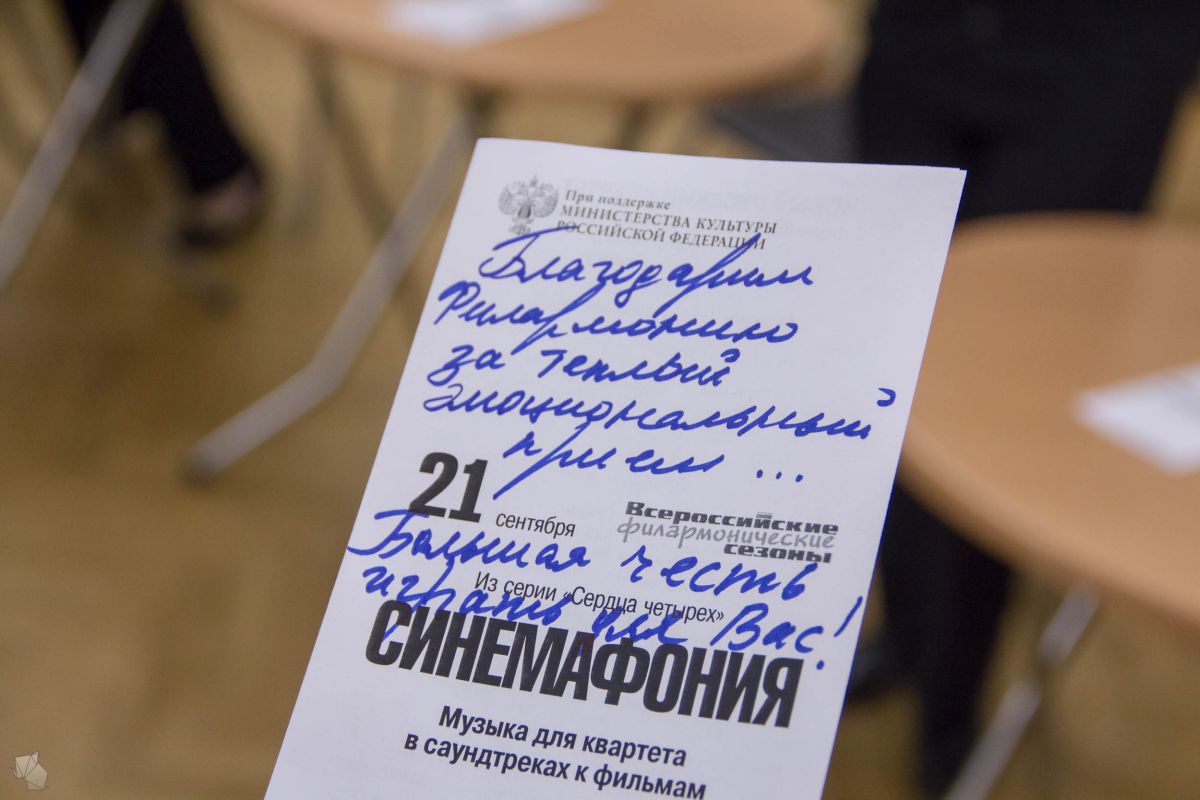 При поддержке
МИНИСТЕРСТВА КУЛЬТУРЫ
РОССИЙСКОЙ ФЕДЕРАЦИИ
Благодарим
Филармонию
за теплый
эмоциональный
прием ...
21 сентября
Всероссийские
филармонические
сезоны
Большая честь
Из серии «Сердца четырех»
играть для Вас!
СИНЕМАФОНИЯ
Музыка для квартета
в саундтреках к фильмам